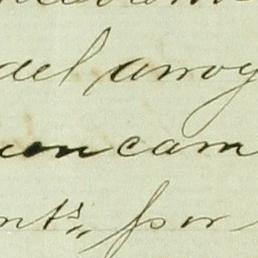 del arroy
con cam
nts., por